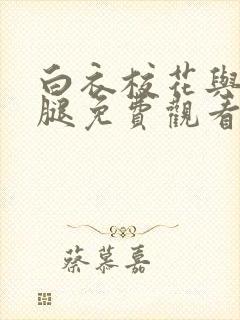 白衣校花與
腿免費觀看
蔡慕嘉